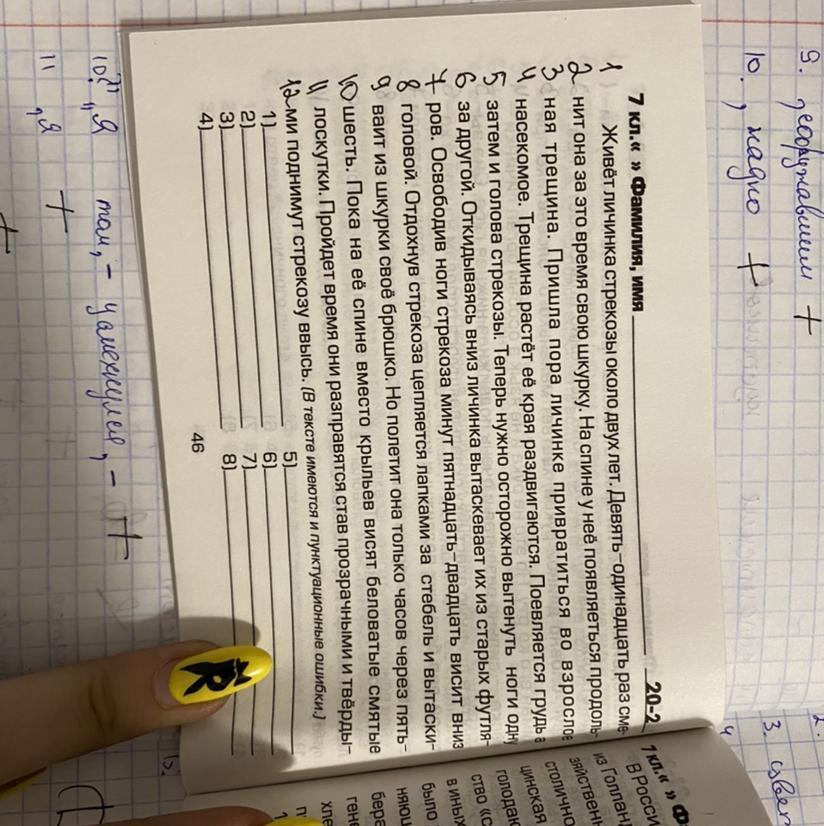 9.
10. , жадно +
7 кл.« » Фамилия, имя
20-2
1 Живёт личинка стрекозы около двух лет. Девять–одинадцать раз сме-
2 нит она за это время свою шкурку. На спине у неё появляеться продоль-
3 ная трещина. Пришла пора личинке привратиться во взросло
4 насекомое. Трещина растёт её края раздвигаются. Поевляется грудь
5 затем и голова стрекозы. Теперь нужно осторожно вытенуть ноги одну
6 за другой. Откидываясь вниз личинка вытаскевает их из старых футля-
7 ров. Освободив ноги стрекоза минут пятнадцать–двадцать висит вниз
8 головой. Отдохнув стрекоза цепляется лапками за стебель и вытаски-
9 ваит из шкурки своё брюшко. Но полетит она только часов через пять–
10 шесть. Пока на её спине вместо крыльев висят беловатые смятые
11 лоскутки. Пройдет время они разправятся став прозрачными и твёрды-
12 ми поднимут стрекозу ввысь. (В тексте имеются и пунктуационные ошибки.)
1)
2)
3)
4)
5)
6)
7)
8)
46
11 „Я +
2.
3.
4
7 кл.« » Ф
В Росси
из Голлан
зяйственн
столично
цинская
голодак
ство «с
в иных
было
няющ
бера
ген
хле
R